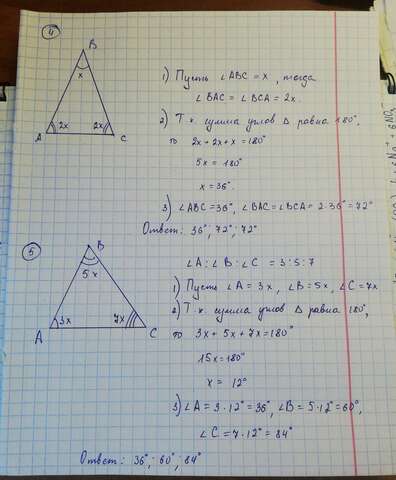 4
B
x
A 2x 2x C
1) Пусть ∠ABC = x, тогда
∠BAC = ∠BCA = 2x.
2) Т.к. сумма углов Δ равна 180°,
то 2x + 2x + x = 180°
5x = 180°
x = 36°.
3) ∠ABC = 36°, ∠BAC = ∠BCA = 2·36° = 72°
Ответ: 36°; 72°; 72°
5
B
5x
A 3x 7x C
∠A : ∠B : ∠C = 3 : 5 : 7
1) Пусть ∠A = 3x, ∠B = 5x, ∠C = 7x
2) Т.к. сумма углов Δ равна 180°,
то 3x + 5x + 7x = 180°
15x = 180°
x = 12°
3) ∠A = 3·12° = 36°, ∠B = 5·12° = 60°,
∠C = 7·12° = 84°
Ответ: 36°; 60°; 84°